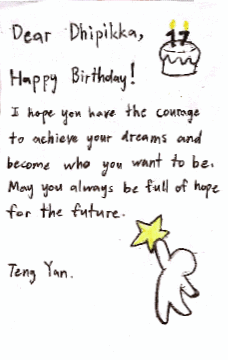 Dear Dhipikka,
17
Happy Birthday!
I hope you have the courage
to achieve your dreams and
become who you want to be.
May you always be full of hope
for the future.
Teng Yan.